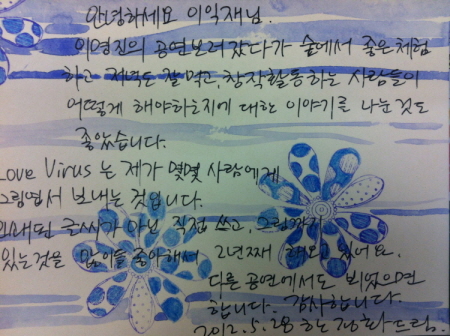 안녕하세요 이익재님.
이영진의 공연보러갔다가 숲에서 좋은체험
하고 저녁도 잘먹고, 창작활동하는 사람들이
어떻게 해야하는지에 대한 이야기를 나눈것도
좋았습니다.
Love Virus 는 제가 몇몇 사람에게
그림엽서 보내는 것입니다.
인쇄된 글씨가 아닌 직접 쓰고, 그린까지
있는것을 많이들 좋아해서 2년째 해오고 있어요.
다른 공연에서도 뵈었으면
합니다. 감사합니다.
2012. 5. 28 드림.